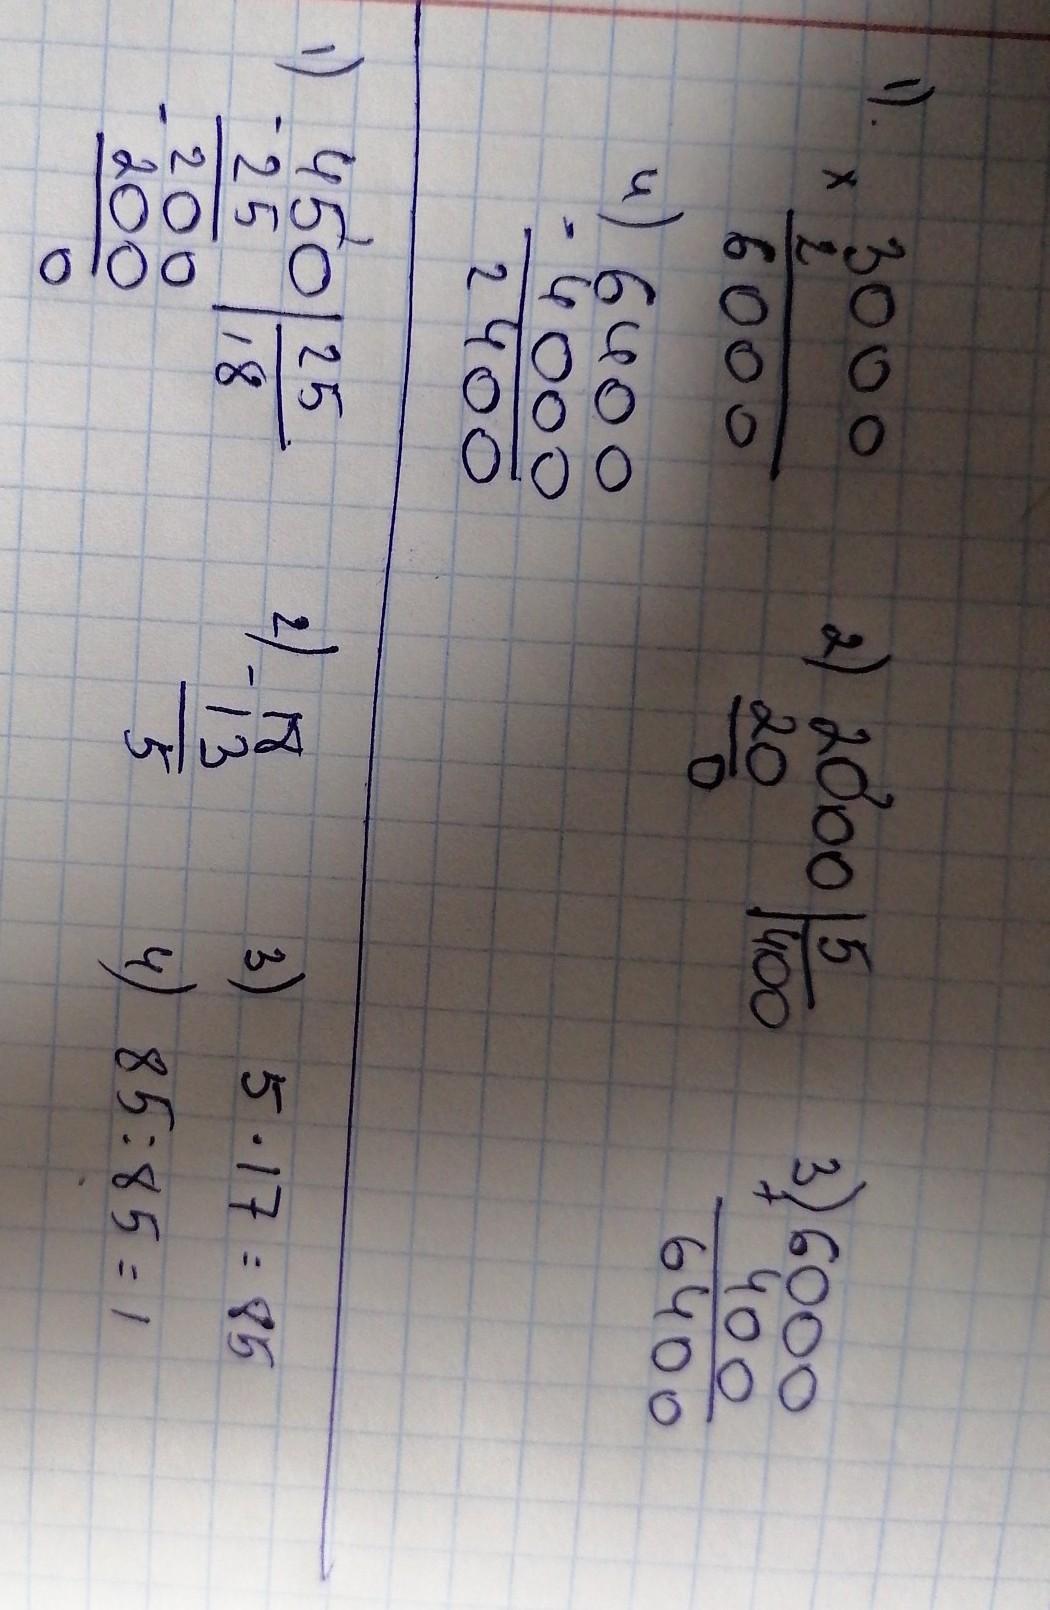 1).
x 3000
2
6000
2) 2000 | 5
20 | 400
0
3) 6000
+ 400
6400
4) 6400
- 4000
2400
1) 450 | 25
- 25 | 18
- 200
200
0
2) - 18
13
5
3) 5 · 17 = 85
4) 85 : 85 = 1